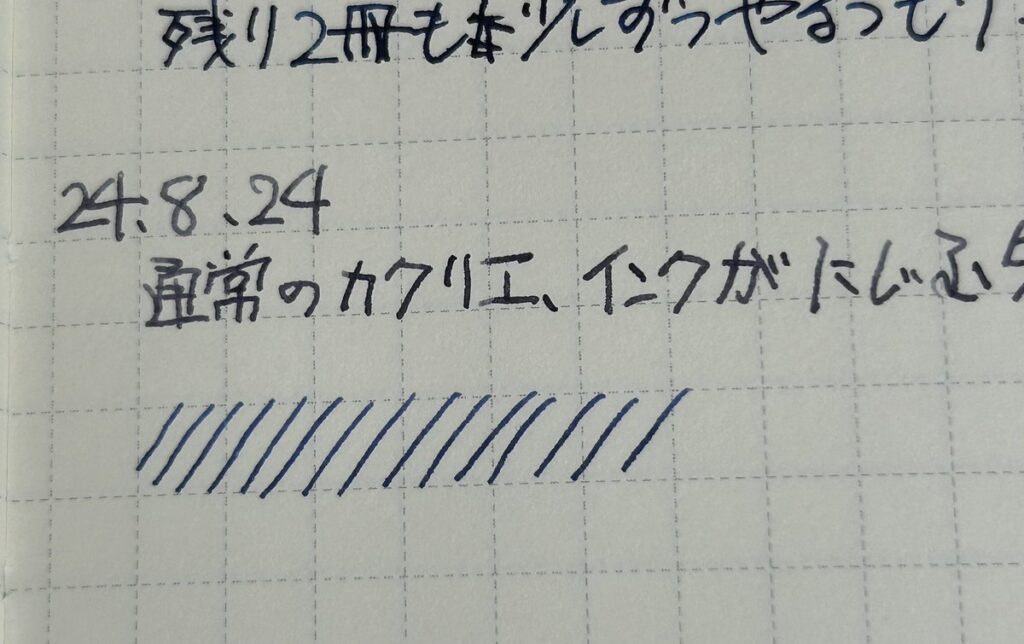 残り2冊も少しずつやるつもり
24.8.24
通常のカクリエ、インクがにじみ